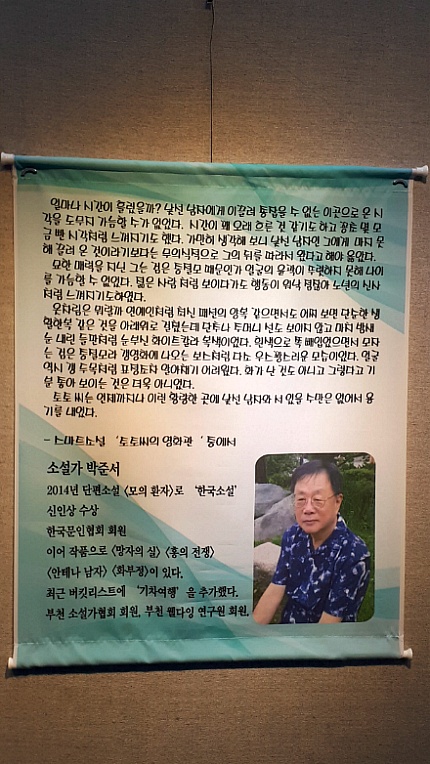 얼마나 시간이 흘렀을까? 낯선 남자에게 이끌려 통 알 수 없는 이곳으로 온 시
각을 도무지 가늠할 수가 없었다. 시간이 꽤 오래 흐른 것 같기도 하고 잠도 덜
금 뺀 시각처럼 느껴지기도 했다. 가만히 생각해 보니 낯선 남자인 그에게 마지 못
해 끌려 온 것이라기보다는 무의식적으로 그의 뒤를 따라서 왔다고 해야 옳았다.
묘한 매력을 지닌 그는 검은 때문인가 얼굴의 윤곽이 뚜렷하지 못해 나이
를 가늠할 수 없었다. 젊은 사람 처럼 보이다가도 행동이 워낙 노년의 신사
처럼 느껴지기도하였다.
옷차림은 뭐랄까 연예인처럼 최신 패션의 양복 같으면서도 어찌 보면 단순한 생
활한복 같은 것을 아래위로 걸쳤는데 단추나 주머니 선도 보이지 않고 마치 밤새
눈 내린 들판처럼 눈부신 화이트칼라 복색이었다. 흰색으로 쪽 빼입었으면서 모자
는 검은 갱영화에 나오는 보스처럼 다소 우스꽝스러운 모습이었다. 얼굴
역시 두목처럼 표정조차 알아채기 어려웠다. 화가 난 것도 아니고 그렇다고 기
분 좋아 보이는 것은 더욱 아니었다.
토토 씨는 언제까지나 이런 황량한 곳에 낯선 남자와 서 있을 수만은 없어서 용
기를 내었다.
- 스마트소설 '토토씨의 영화관' 중에서
소설가 박준서
2014년 단편소설 <모의 환자>로 '한국소설'
신인상 수상
한국문인협회 회원
이어 작품으로 <망자의 실> <홍의 전쟁>
<안테나 남자> <화부정>이 있다.
최근 버킷리스트에 '기차여행' 을 추가했다.
부천 소설가협회 회원, 부천 웰다잉 연구원 회원.